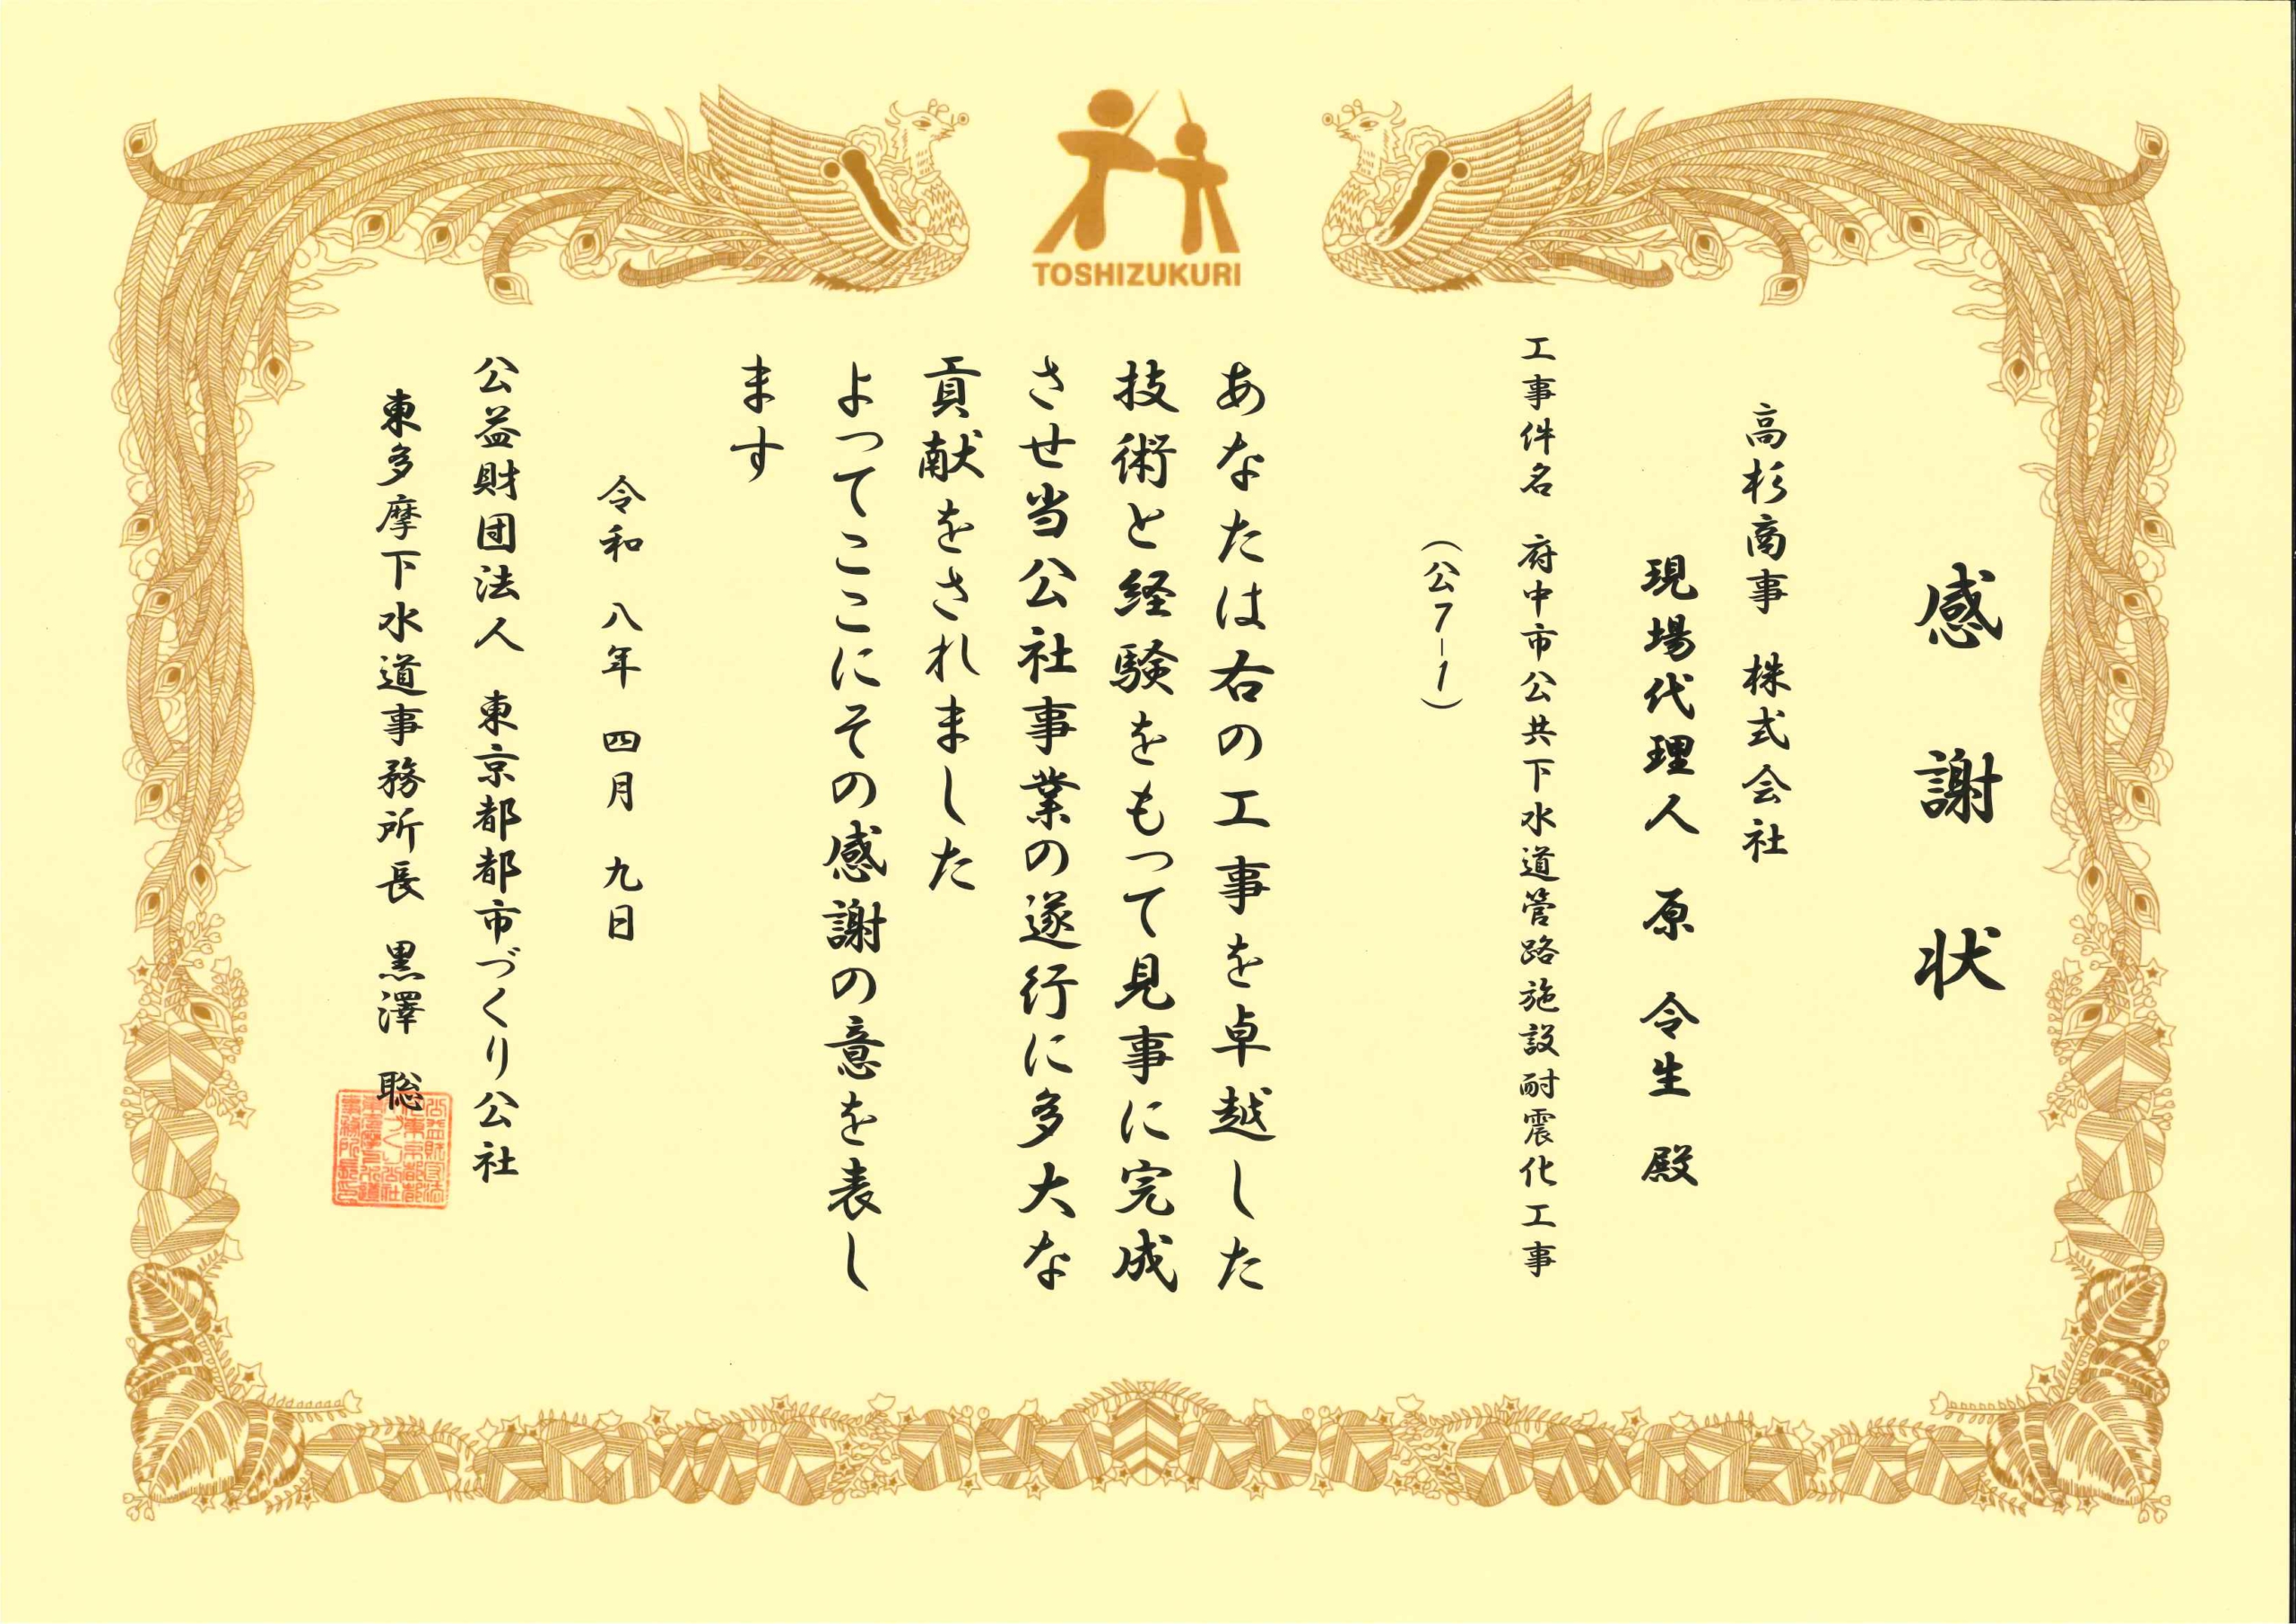 TOSHIZUKURI
感謝状
高杉商事 株式会社
現場代理人 原 令生 殿
工事件名 府中市公共下水道管路施設耐震化工事
（公7-1）
あなたは右の工事を卓越した
技術と経験をもって見事に完成
させ当公社事業の遂行に多大な
貢献をされました
よってここにその感謝の意を表し
ます
令和 八年 四月 九日
公益財団法人 東京都都市づくり公社
東多摩下水道事務所長 黒澤 聡